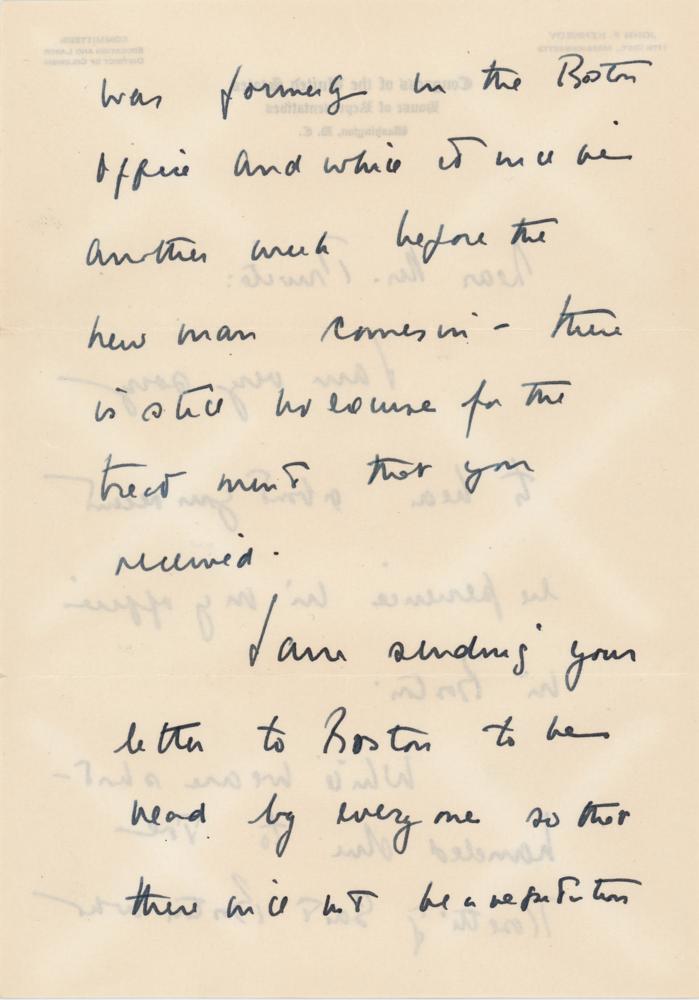 was formerly in the Boston
office and while it will be
another week before the
new man comes in - there
is still no excuse for the
treatment that you
received.
I am sending your
letter to Boston to be
read by everyone so that
there will not be a repetition